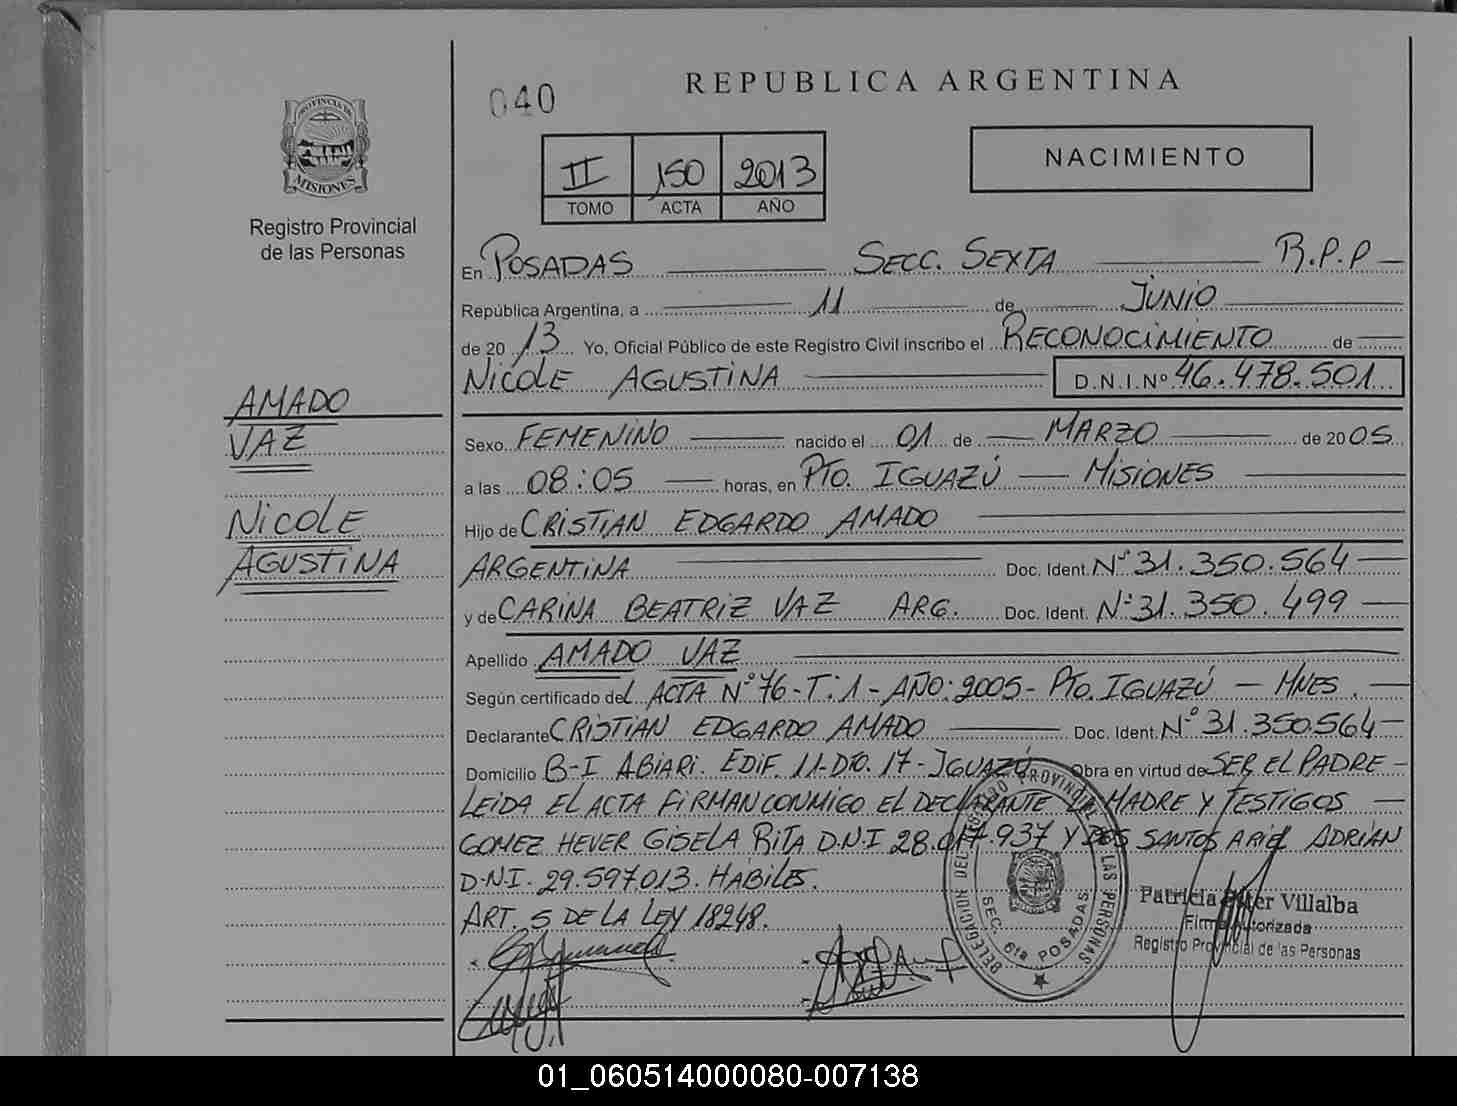 040
REPUBLICA ARGENTINA
PROVINCIA DE
MISIONES
Registro Provincial
de las Personas
II 150 2013
TOMO ACTA AÑO
NACIMIENTO
En POSADAS SECC. SEXTA R.P.P
República Argentina, a 11 de JUNIO
de 2013 Yo, Oficial Público de este Registro Civil inscribo el RECONOCIMIENTO de
NICOLE AGUSTINA D.N.I.Nº 46.478.501
AMADO
VAZ
NICOLE
AGUSTINA
Sexo FEMENINO nacido el 01 de MARZO de 2005
a las 08:05 horas, en PTO. IGUAZÚ MISIONES
Hijo de CRISTIAN EDGARDO AMADO
ARGENTINA Doc. Ident. Nº 31.350.564
y de CARINA BEATRIZ VAZ ARG. Doc. Ident. Nº 31.350.499
Apellido AMADO VAZ
Según certificado del ACTA Nº 76-T:1-AÑO:2005- PTO. IGUAZÚ - MNES.
Declarante CRISTIAN EDGARDO AMADO Doc. Ident. Nº 31.350.564
Domicilio B-I ABIARI. EDIF. 11-DTO. 17-IGUAZÚ Obra en virtud de SER EL PADRE
LEIDA EL ACTA FIRMAN CONMIGO EL DECLARANTE LA MADRE Y TESTIGOS
GOMEZ HEVER GISELA RITA D.N.I 28.017.937 Y DOS SANTOS ARIEL ADRIAN
D.N.I. 29.597013. HÁBILES.
ART. 5 DE LA LEY 18248.
DELEGACION DEL REGISTRO PROVINCIAL DE LAS PERSONAS
SEC. 6ta POSADAS
Patricia Villalba
Firma Autorizada
Registro Provincial de las Personas
01_060514000080-007138